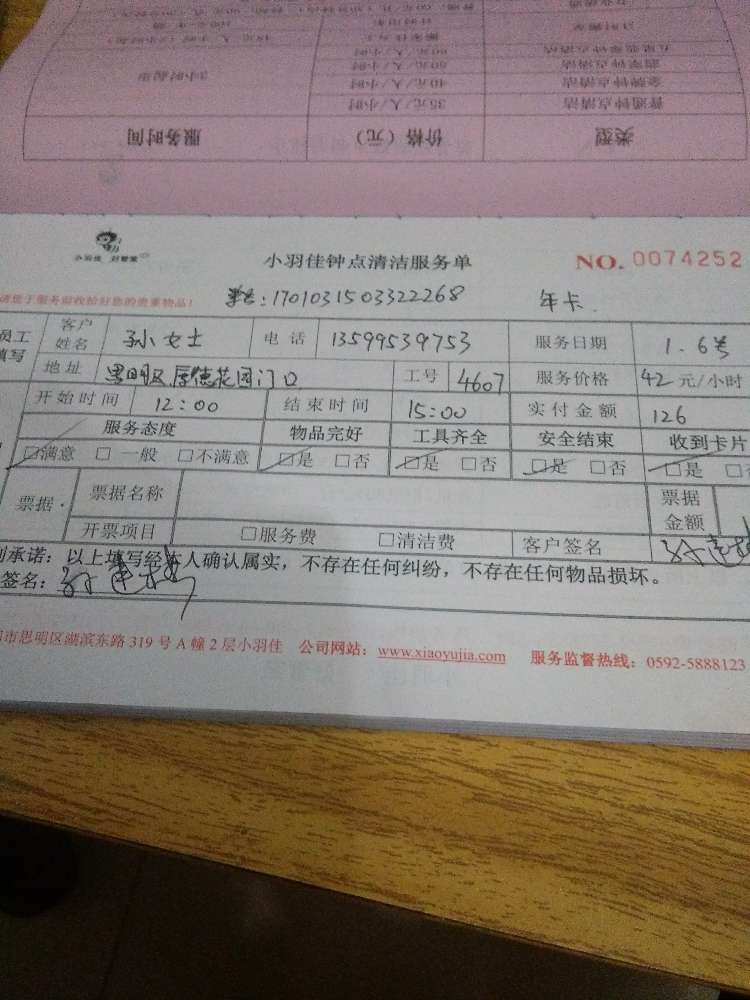 类型 价格（元） 服务时间
普通钟点清洁 35元/人/小时
金牌钟点清洁 40元/人/小时 3小时起步
翡翠钟点清洁 50元/人/小时
五星级钟点清洁 60元/人/小时
小羽佳 好管家
小羽佳钟点清洁服务单 NO. 0074252
请您于服务前收拾好您的贵重物品！ 单号：1701031503322268 年卡
员工填写 客户姓名 孙女士 电话 13599539753 服务日期 1.6号
地址 思明区厚德花园门口 工号 4607 服务价格 42 元/小时
开始时间 12:00 结束时间 15:00 实付金额 126
服务态度 物品完好 工具齐全 安全结束 收到卡片
□满意 □一般 □不满意 □是 □否 □是 □否 □是 □否 □是
票据 票据名称 票据金额
开票项目 □服务费 □清洁费 客户签名
承诺：以上填写经本人确认属实，不存在任何纠纷，不存在任何物品损坏。
签名：
市思明区湖滨东路 319 号 A 幢 2 层小羽佳 公司网站：www.xiaoyujia.com 服务监督热线：0592-5888123